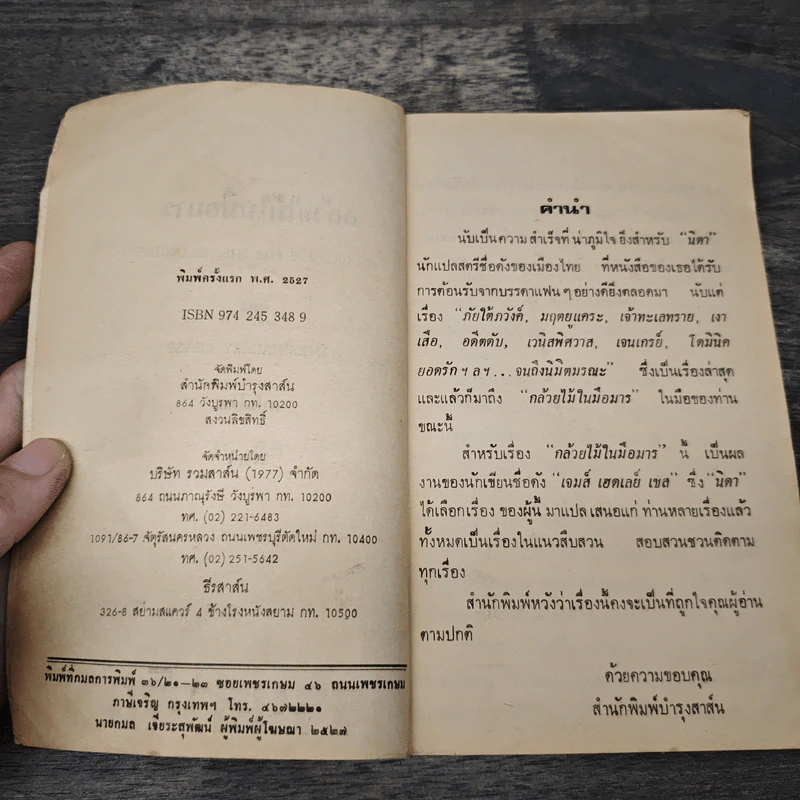 พิมพ์ครั้งแรก พ.ศ. 2527
ISBN 974 245 348 9
จัดพิมพ์โดย
สำนักพิมพ์บำรุงสาส์น
864 วังบูรพา กท. 10200
สงวนลิขสิทธิ์
จัดจำหน่ายโดย
บริษัท รวมสาส์น (1977) จำกัด
864 ถนนภาณุรังษี วังบูรพา กท. 10200
ทศ. (02) 221-6483
1091/86-7 จัตุรัสนครหลวง ถนนเพชรบุรีตัดใหม่ กท. 10400
ทศ. (02) 251-5642
ธีรสาส์น
326-8 สยามสแควร์ 4 ข้างโรงหนังสยาม กท. 10500
พิมพ์ที่กมลการพิมพ์ ๓๖/๒๑-๒๓ ซอยเพชรเกษม ๔๖ ถนนเพชรเกษม
ภาษีเจริญ กรุงเทพฯ โทร. ๔๖๗๒๒๒๑
นายกมล เจียระสุพัฒน์ ผู้พิมพ์ผู้โฆษณา ๒๕๒๗
คำนำ
นับเป็นความสำเร็จที่น่าภูมิใจยิ่งสำหรับ “นิดา”
นักแปลสตรีชื่อดังของเมืองไทย ที่หนังสือของเธอได้รับ
การต้อนรับจากบรรดาแฟน ๆ อย่างดียิ่งตลอดมา นับแต่
เรื่อง “ภัยใต้ภวังค์, มฤตยูแคระ, เจ้าทะเลทราย, เงา
เสือ, อดีตดับ, เวนิสพิศวาส, เจนเกรย์, โดมินิค
ยอดรัก ฯ ล ฯ...จนถึงนิมิตมรณะ” ซึ่งเป็นเรื่องล่าสุด
และแล้วก็มาถึง “กล้วยไม้ในมือมาร” ในมือของท่าน
ขณะนี้
สำหรับเรื่อง “กล้วยไม้ในมือมาร” นี้ เป็นผล
งานของนักเขียนชื่อดัง “เจมส์ เฮดเลย์ เชส” ซึ่ง “นิดา”
ได้เลือกเรื่องของผู้นี้มาแปลเสนอแก่ท่านหลายเรื่องแล้ว
ทั้งหมดเป็นเรื่องในแนวสืบสวน สอบสวนชวนติดตาม
ทุกเรื่อง
สำนักพิมพ์หวังว่าเรื่องนี้คงจะเป็นที่ถูกใจคุณผู้อ่าน
ตามปกติ
ด้วยความขอบคุณ
สำนักพิมพ์บำรุงสาส์น